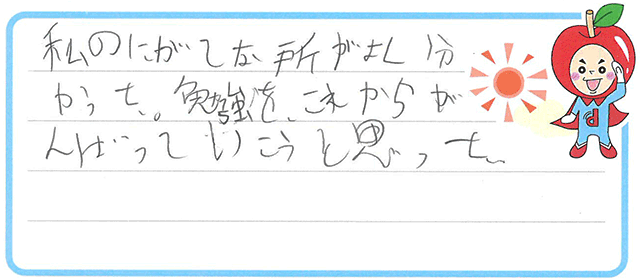 私のにがてな所がよく分
かった。勉強を、これからが
んばっていこうと思った。